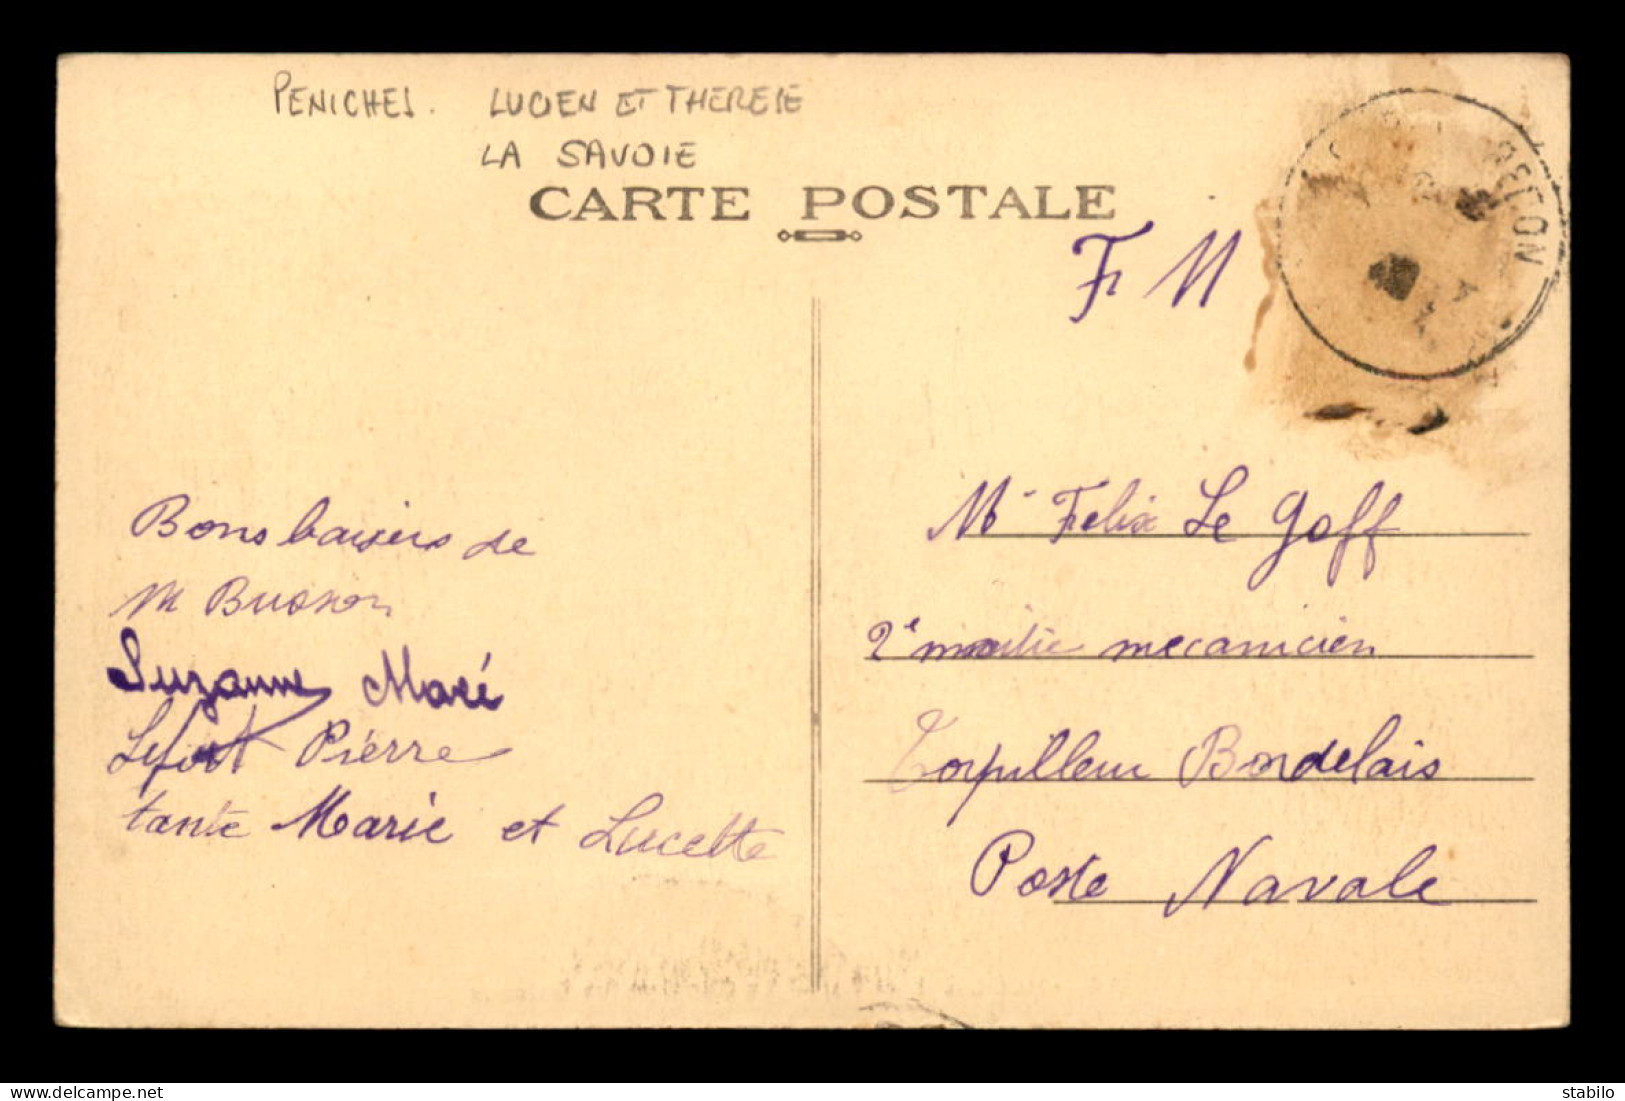 PENICHES. LUCIEN ET THERESE
LA SAVOIE
CARTE POSTALE
F M
Bons baisers de
M Busson
Suzanne Maré
Lefort Pierre
tante Marie et Lucette
Mr Felix Le Goff
2e maitre mecanicien
Torpilleur Bordelais
Poste Navale
delcampe.net
stabilo